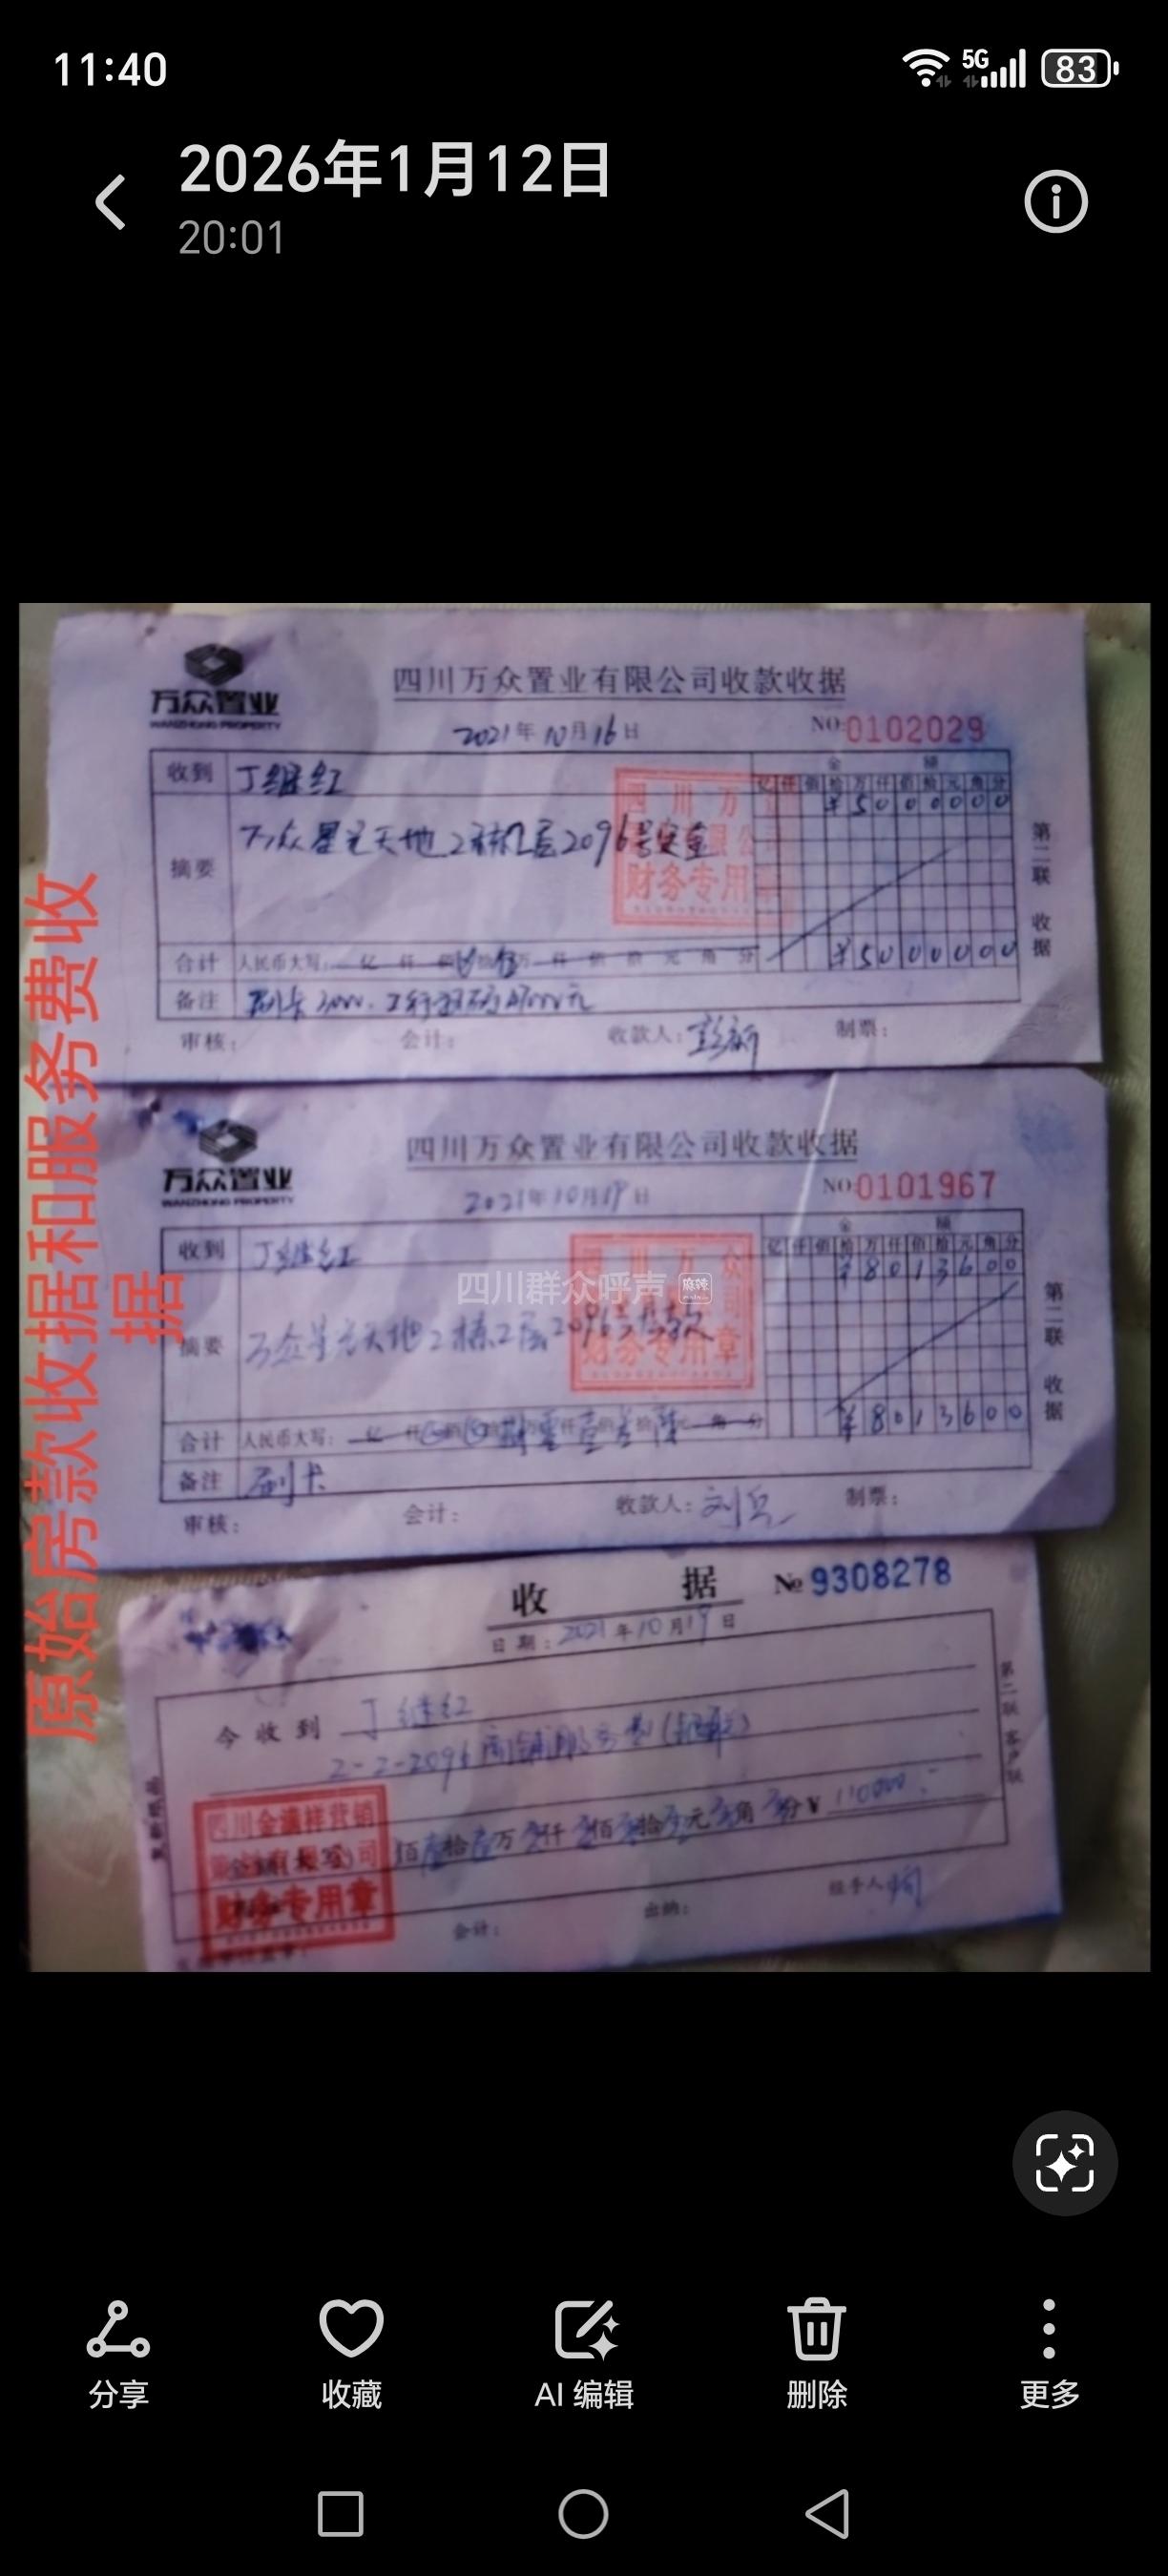 11:40
5G
83
2026年1月12日
20:01
万众置业
WANZHONG PROPERTY
四川万众置业有限公司收款收据
2021年10月16日
NO:0102029
收到 丁继红
金 额
亿仟佰拾万仟佰拾元角分
¥5000000
摘要
万众星光天地2栋2层2096号定金
四川万
财务专用章
合计 人民币大写: 亿 仟 佰 拾伍万 仟 佰 拾 元 角 分
¥5000000
备注 刷卡
审核: 会计: 收款人: 制票:
第二联 收据
万众置业
WANZHONG PROPERTY
四川万众置业有限公司收款收据
2021年10月19日
NO:0101967
收到 丁继红
金 额
亿仟佰拾万仟佰拾元角分
¥8013600
四川群众呼声 麻辣
摘要
万众星光天地2栋2层2096号房款
四川万众
财务专用章
合计 人民币大写:
¥8013600
备注 刷卡
审核: 会计: 收款人: 刘兵 制票:
第二联 收据
收 据
№ 9308278
日期: 2021年10月19日
今收到 丁继红
2-2-2096商铺服务费
佰壹拾壹万零仟零佰零拾零元零角零分¥ 110000
四川金满祥营销
财务专用章
会计: 出纳: 经手人
第二联 客户联
原始房款收据和服务费收
据
分享
收藏
AI 编辑
删除
更多